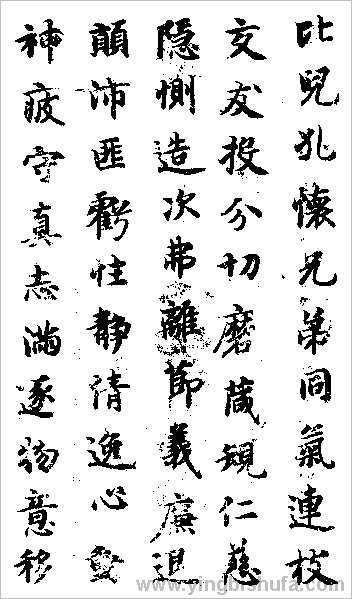 比兒孔懷兄弟同氣連枝
交友投分切磨箴規仁慈
隐惻造次弗離節義廉退
顛沛匪虧性靜情逸心動
神疲守真志滿逐物意移
www.yingbishufa.com